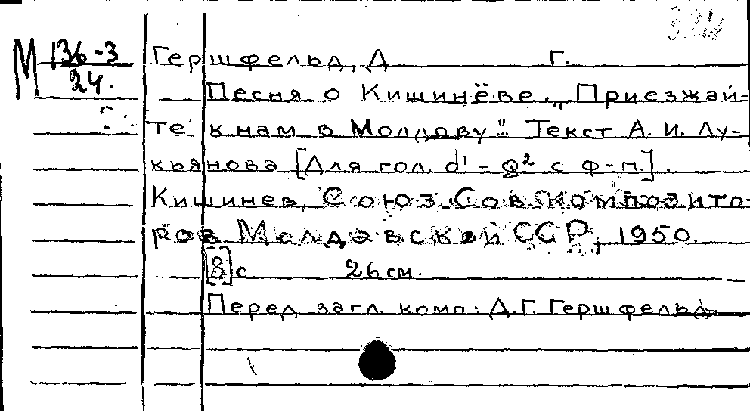 М 136-3
24.
Гершфельд, Д Г.
Песня о Кишинёве. „Приезжай-
те к нам в Молдову". Текст А. И. Лу-
кьянова [Для гол. d¹ - g² с ф-п.].
Кишинев, Союз Сов композито-
ров Молдавской ССР, 1950.
[8] с 26 см.
Перед загл. комп: Д. Г. Гершфельд